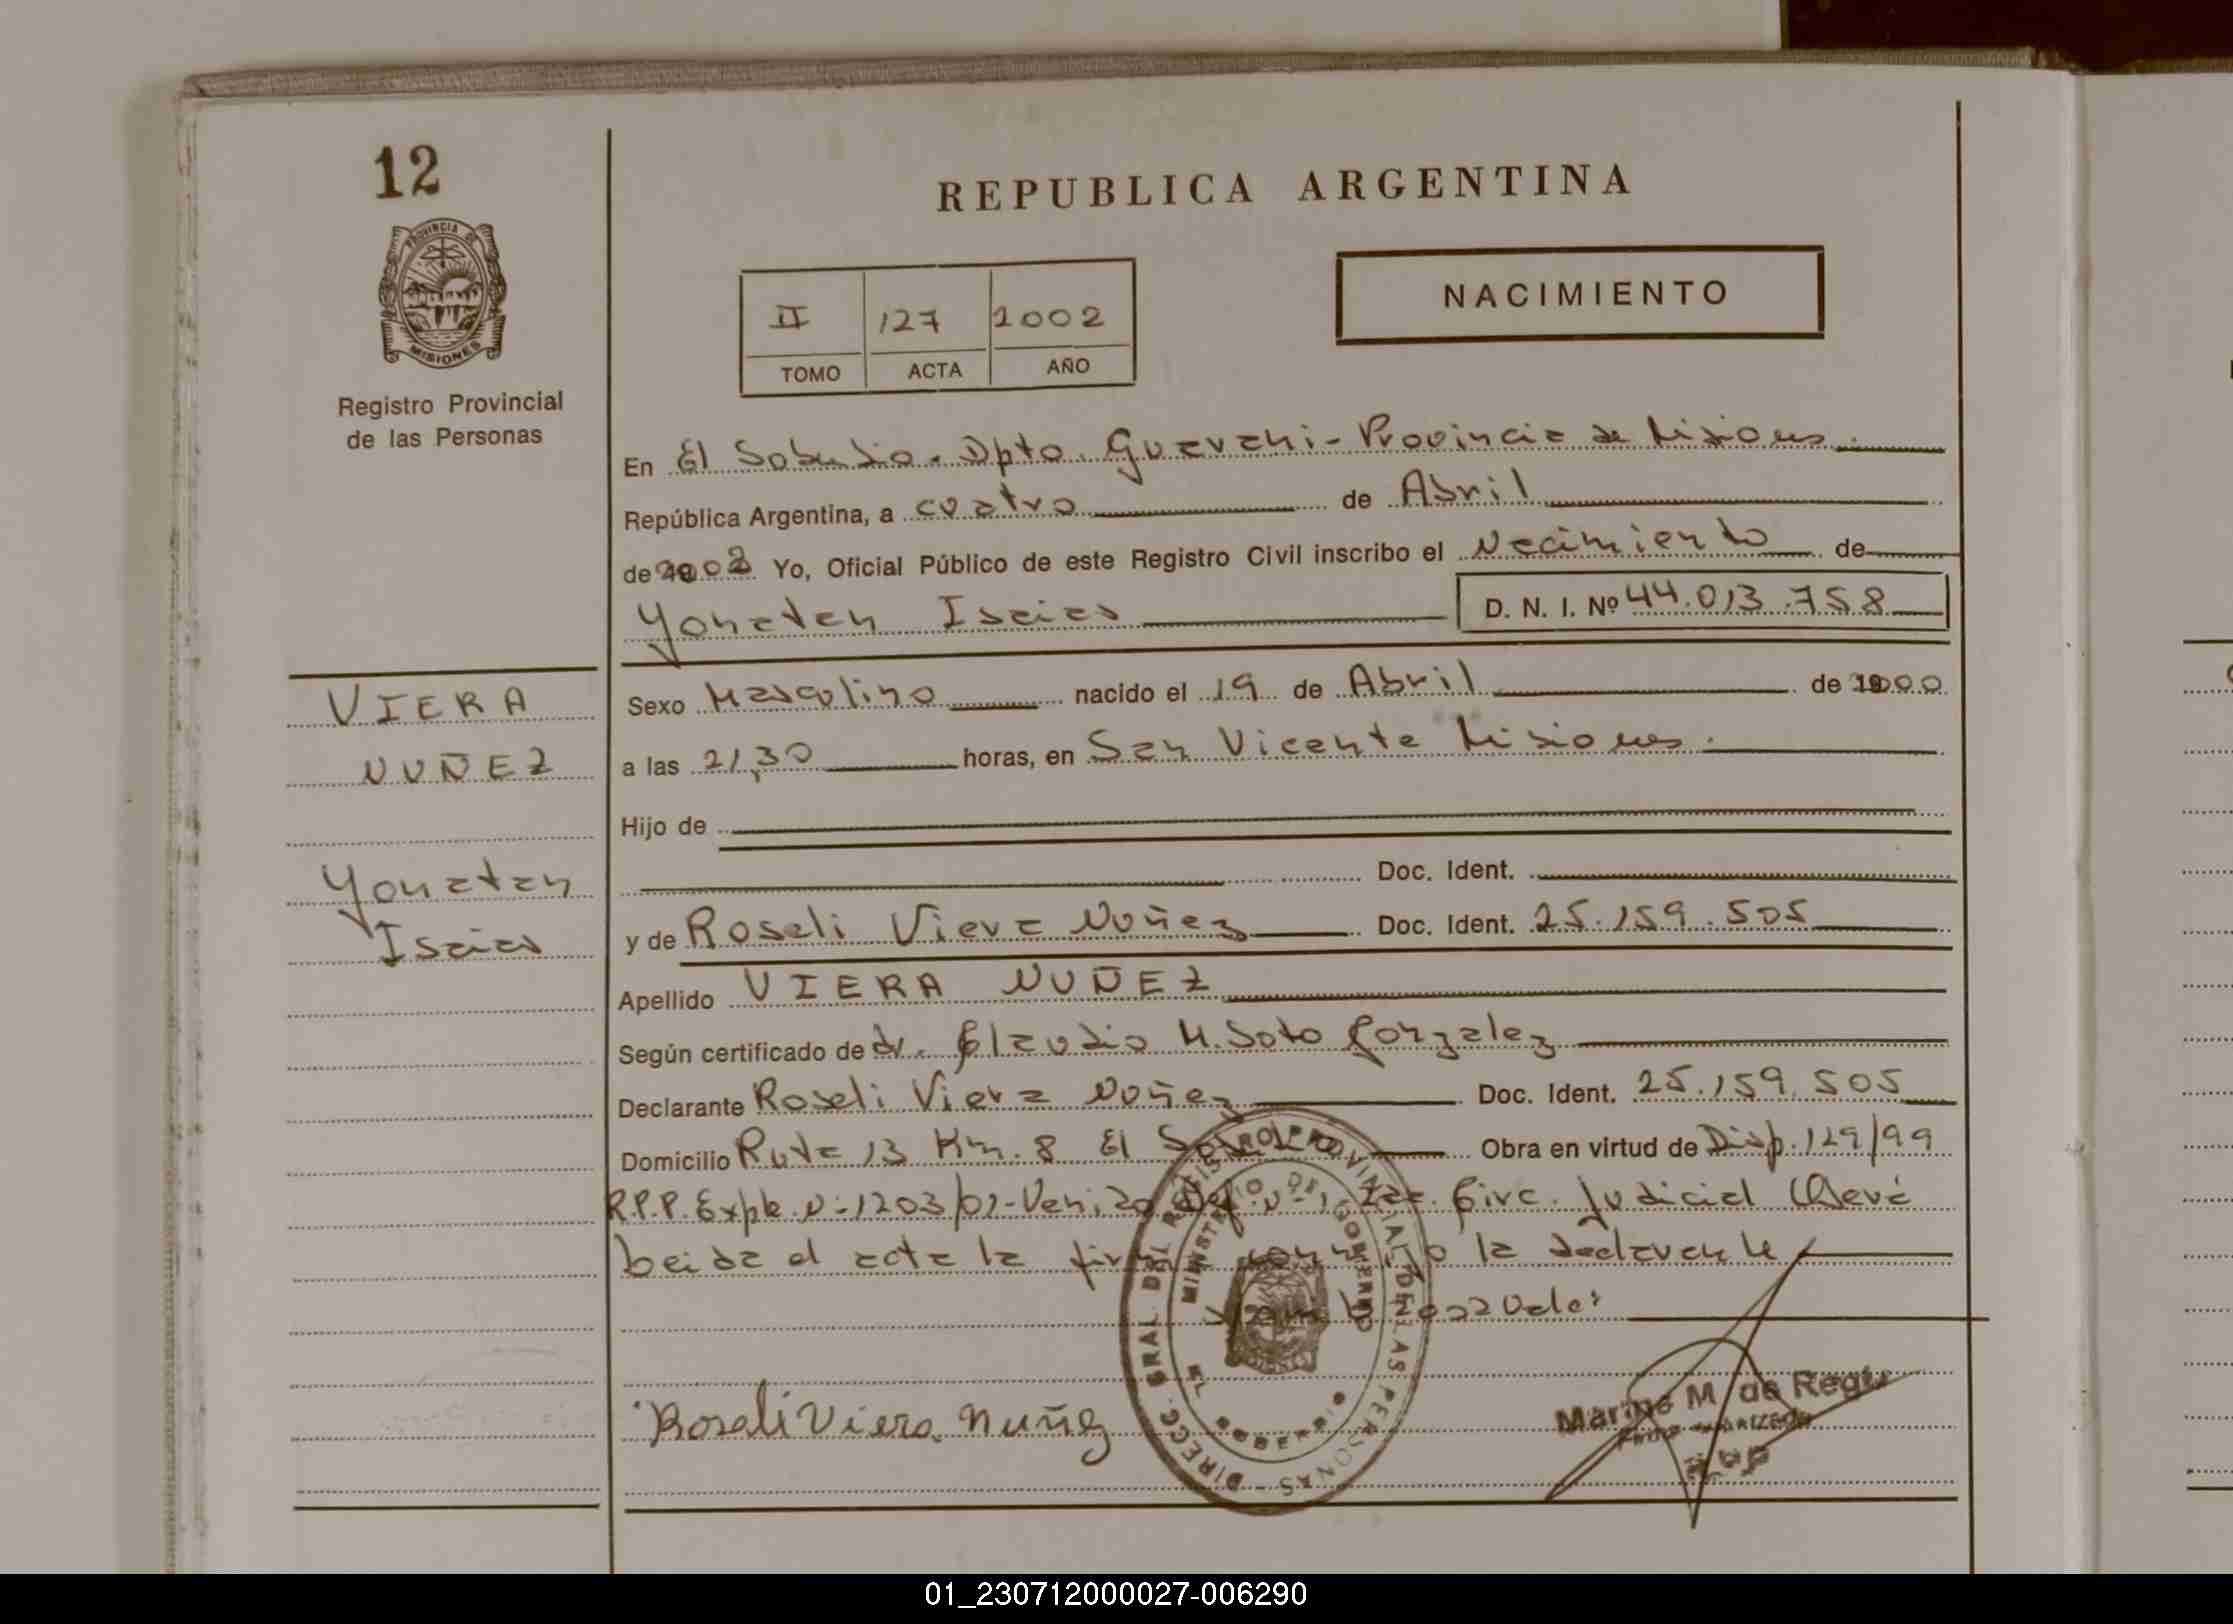 12
PROVINCIA DE
MISIONES
Registro Provincial
de las Personas
REPUBLICA ARGENTINA
II 127 2002
TOMO ACTA AÑO
NACIMIENTO
En El Soberbio. Dpto. Guarani - Provincia de Misiones.
República Argentina, a cuatro de Abril
de 2002 Yo, Oficial Público de este Registro Civil inscribo el Nacimiento de
Yonatan Isaias D. N. I. Nº 44.013.758
VIERA
NUÑEZ
Yonatan
Isaias
Sexo Masculino nacido el 19 de Abril de 2000
a las 21,30 horas, en San Vicente Misiones.
Hijo de
Doc. Ident.
y de Roseli Viera Nuñez Doc. Ident. 25.159.505
Apellido VIERA NUÑEZ
Según certificado de dr. Claudio M. Soto Gonzalez
Declarante Roseli Viera Nuñez Doc. Ident. 25.159.505
Domicilio Ruta 13 Km. 8 El Obra en virtud de Disp. 129/99
R.P.P. Expte. Nº 1203/01 - Circ. Judicial
Leida el acta la la declarante
Roseli Viera Nuñez
DIRECC. GRAL DEL REGISTRO PROVINCIAL DE LAS PERSONAS
MINISTERIO DE GOBIERNO
EL SOBERBIO
Marina M. de Regu
01_230712000027-006290